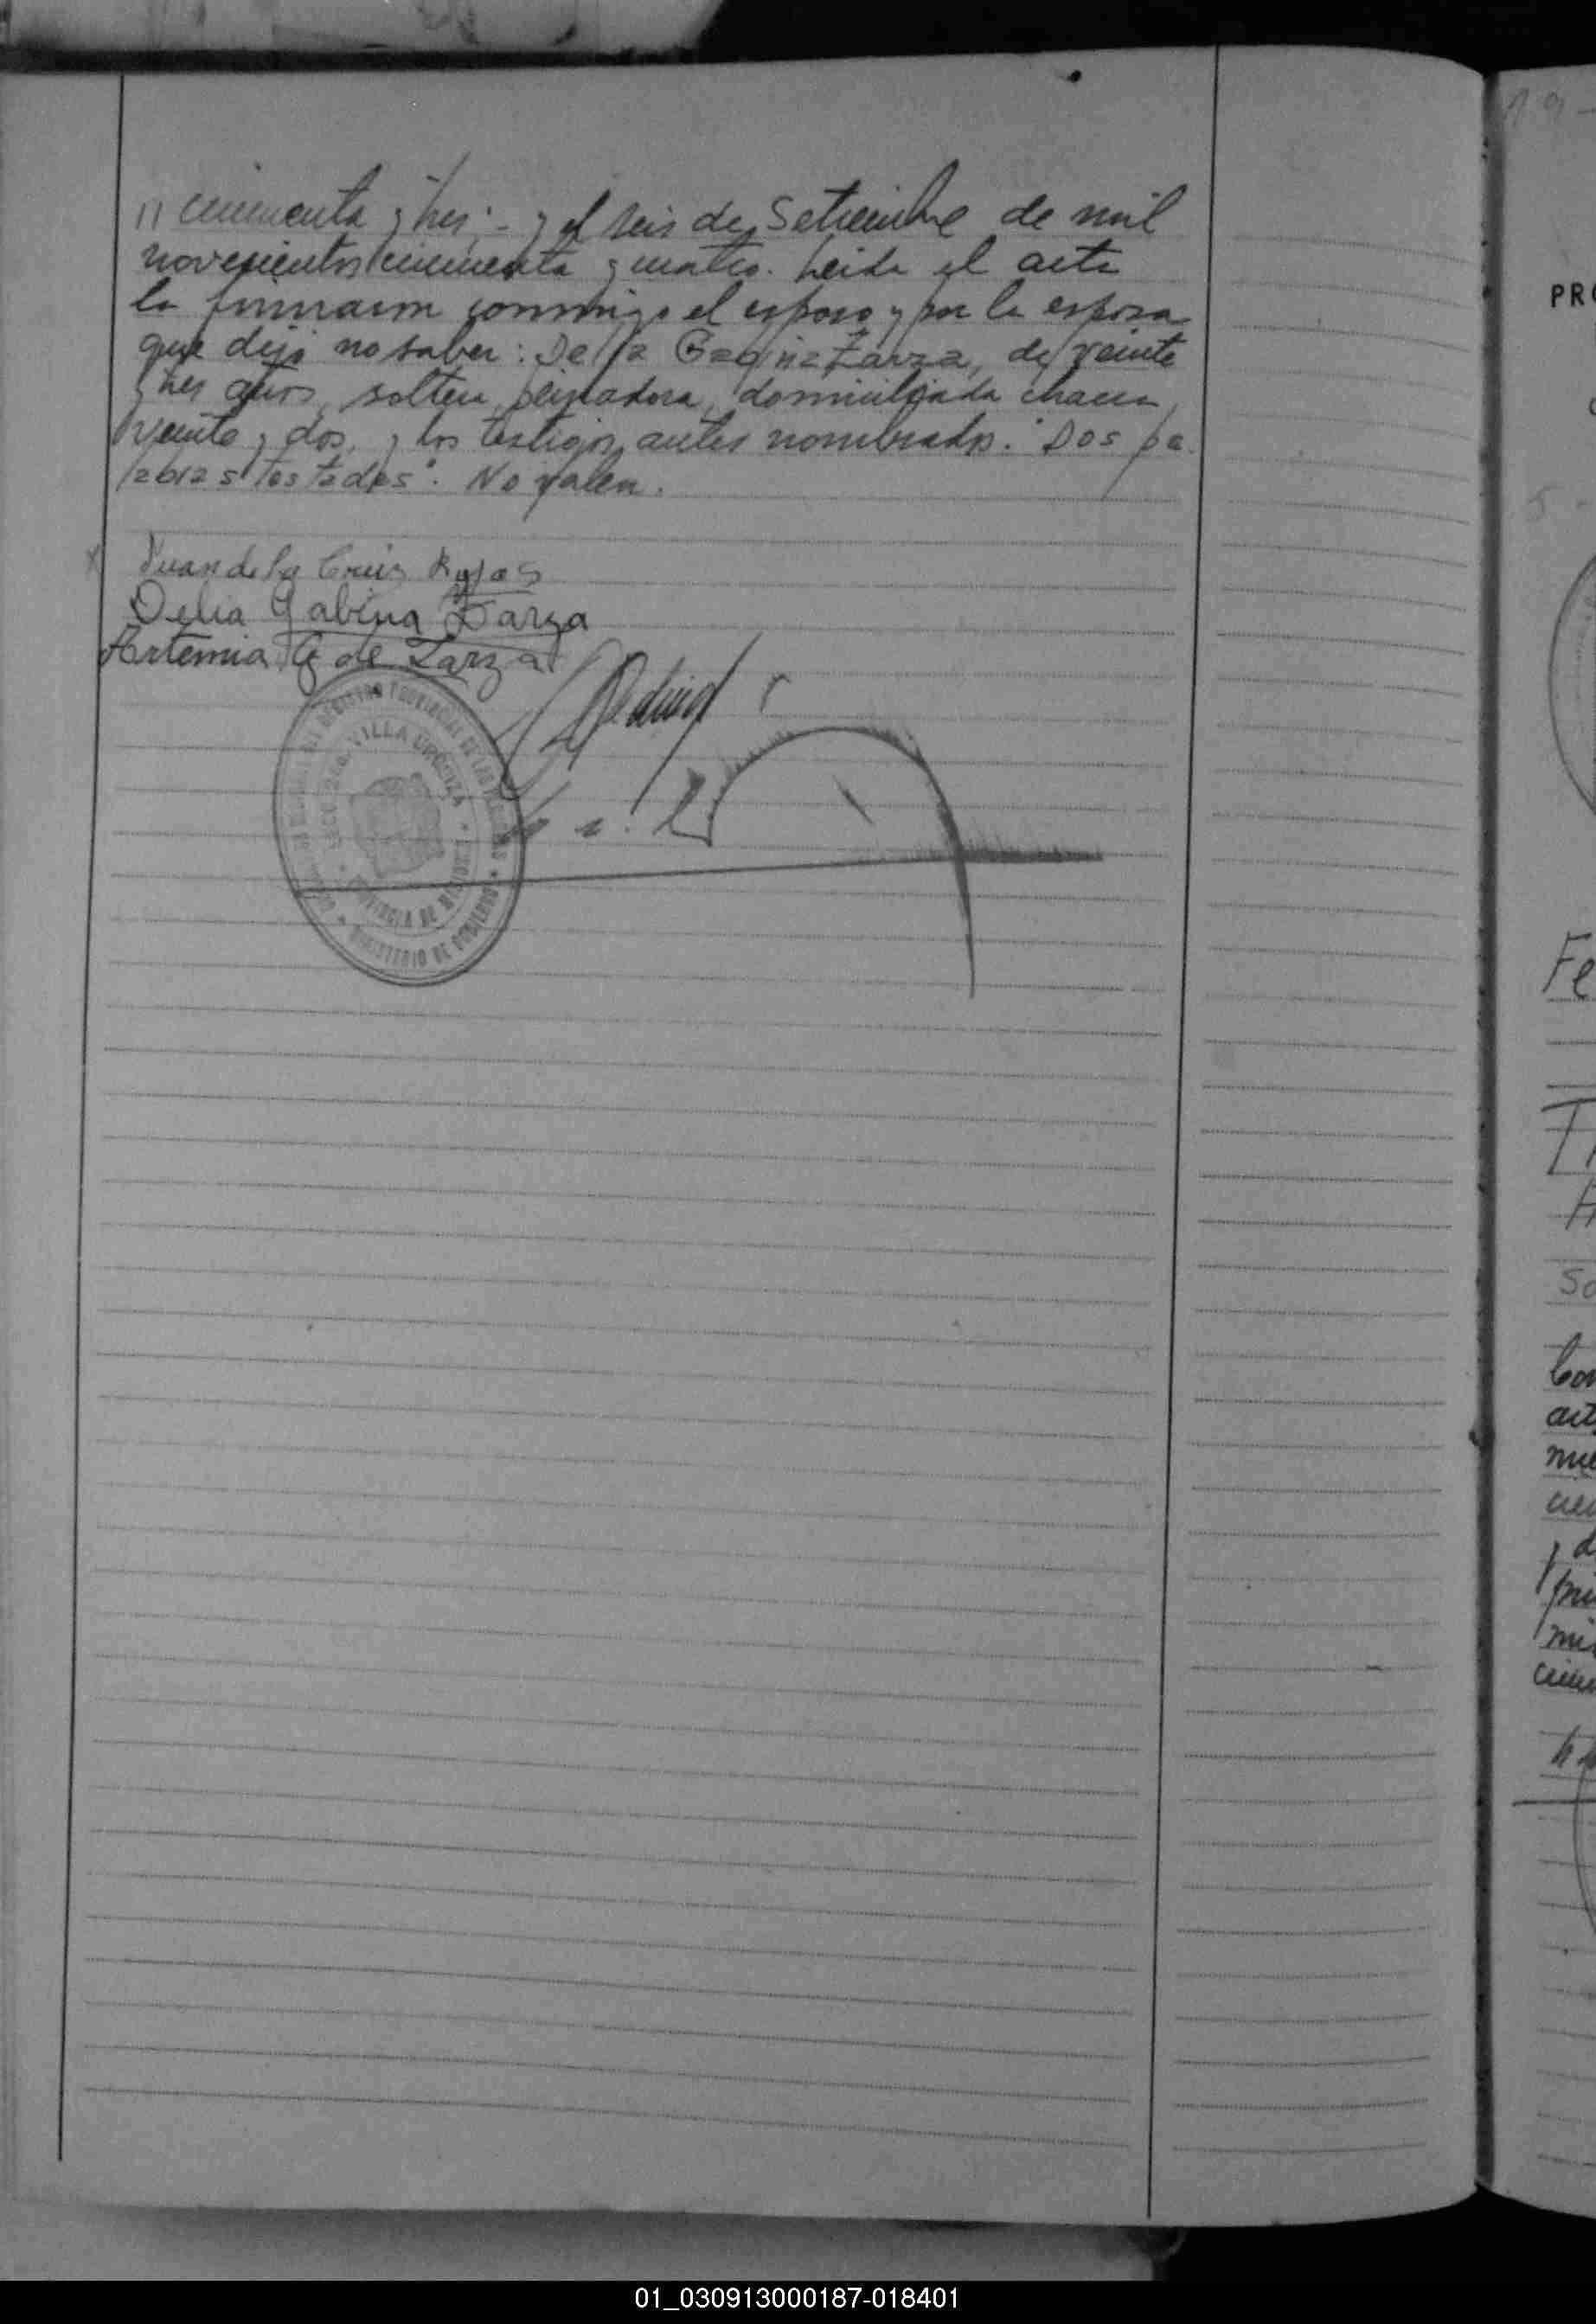 " cincuenta y tres; - y el seis de Setiembre de mil
novecientos cincuenta y cuatro. Leida el acta
la firmaron conmigo el esposo y por la esposa
que dijo no saber: Delia Gabina Zarza, de veinte
y tres años, soltera, peinadora, domiciliada chacra
veinte y dos, y los testigos antes nombrados. "Dos pa-
labras testadas". No valen.
Juan de la Cruz Rojas
Delia Gabina Zarza
Artemia G de Zarza
REGISTRO PROVINCIAL DE LAS PERSONAS
VILLA URQUIZA
PROVINCIA DE MISIONES
MINISTERIO DE GOBIERNO
19-
PRO
5-
Fe
So
Con
act
nue
cie
y d
pri
mis
cinc
01_030913000187-018401